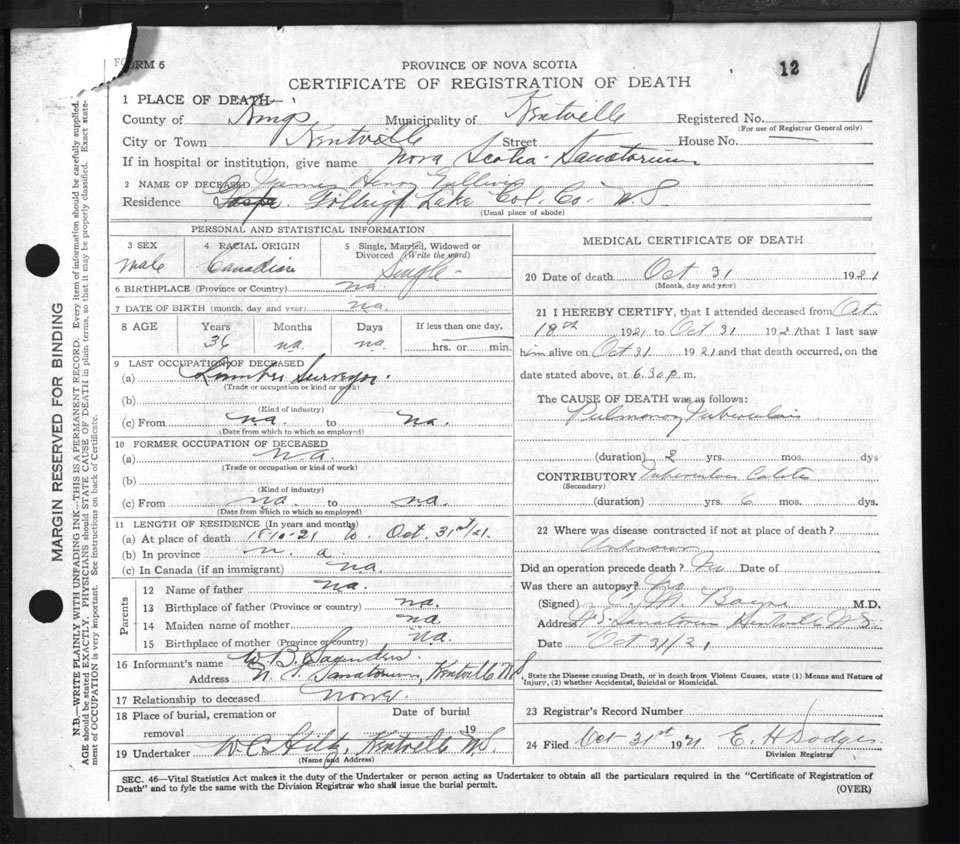 FORM 6
PROVINCE OF NOVA SCOTIA
12
CERTIFICATE OF REGISTRATION OF DEATH
1 PLACE OF DEATH—
County of Kings Municipality of Kentville Registered No.
(For use of Registrar General only)
City or Town Kentville Street House No.
If in hospital or institution, give name Nova Scotia Sanatorium
2 NAME OF DECEASED James Henry
Residence Folleigh Lake Col. Co. N.S.
(Usual place of abode)
PERSONAL AND STATISTICAL INFORMATION
3 SEX 4 RACIAL ORIGIN 5 Single, Married, Widowed or
Divorced (Write the word)
Male Canadian Single
6 BIRTHPLACE (Province or Country) na.
7 DATE OF BIRTH (month, day and year) na
8 AGE Years Months Days If less than one day,
36 na. na. hrs. or min.
9 LAST OCCUPATION OF DECEASED
(a) Lumber Surveyor.
(Trade or occupation or kind of work)
(b)
(Kind of industry)
(c) From na. to na.
(Date from which to which so employed)
10 FORMER OCCUPATION OF DECEASED
(a) n.a.
(Trade or occupation or kind of work)
(b)
(Kind of industry)
(c) From na. to na.
(Date from which to which so employed)
11 LENGTH OF RESIDENCE (In years and months)
(a) At place of death 18-10-21 to Oct. 31st/21.
(b) In province n. a.
(c) In Canada (if an immigrant) na.
Parents
12 Name of father na.
13 Birthplace of father (Province or country) na.
14 Maiden name of mother na
15 Birthplace of mother (Province or country) na.
16 Informant's name W. B. Saunders
Address N. S. Sanatorium, Kentville NS
17 Relationship to deceased none.
18 Place of burial, cremation or Date of burial
removal 19
19 Undertaker W. C. Hiltz, Kentville N.S.
(Name and Address)
MEDICAL CERTIFICATE OF DEATH
20 Date of death Oct 31 1921
(Month, day and year)
21 I HEREBY CERTIFY, that I attended deceased from Oct.
18th 1921 to Oct 31 1921 that I last saw
him alive on Oct 31 1921 and that death occurred, on the
date stated above, at 6.30 p.m.
The CAUSE OF DEATH was as follows:
Pulmonary Tuberculosis
(duration) 2 yrs. mos. dys
CONTRIBUTORY Tuberculous Colitis
(Secondary)
(duration) yrs. 6 mos. dys.
22 Where was disease contracted if not at place of death?
Unknown
Did an operation precede death? No Date of
Was there an autopsy? No
(Signed) M.D.
Address N.S. Sanatorium Kentville N.S.
Date Oct 31/21
State the Disease causing Death, or in death from Violent Causes, state (1) Means and Nature of
Injury, (2) whether Accidental, Suicidal or Homicidal.
23 Registrar's Record Number
24 Filed Oct 31st 1921 E. H. Dodge.
Division Registrar
SEC. 46—Vital Statistics Act makes it the duty of the Undertaker or person acting as Undertaker to obtain all the particulars required in the "Certificate of Registration of
Death" and to fyle the same with the Division Registrar who shall issue the burial permit.
(OVER)
MARGIN RESERVED FOR BINDING
N.B.—WRITE PLAINLY WITH UNFADING INK—THIS IS A PERMANENT RECORD. Every item of information should be carefully supplied.
AGE should be stated EXACTLY. PHYSICIANS should STATE CAUSE OF DEATH in plain terms, so that it may be properly classified. Exact state-
ment of OCCUPATION is very important. See instructions on back of Certificate.